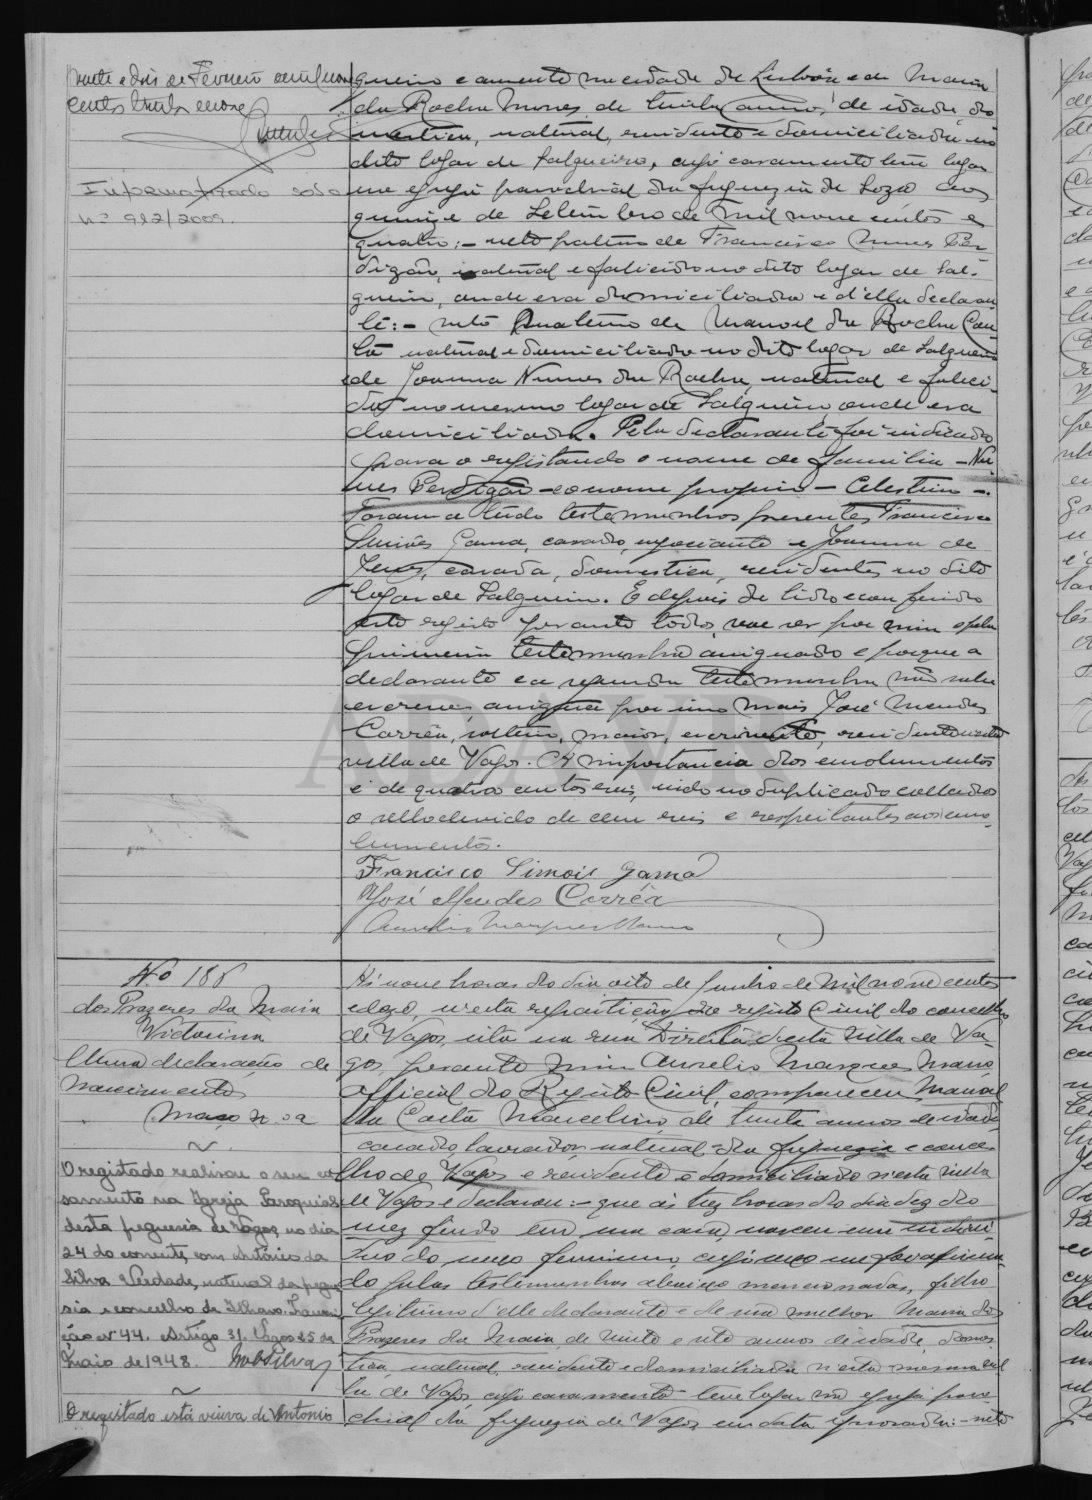 vinte e dois de Fevereiro de mil nove
centos trinta e nove
Informatizado sob o
nº 982/2009.
gueiro e ausente na cidade de Lisboa e de Maria
da Rocha Nunes, de trinta annos, de idade, do
mestica, natural, residente e domiciliada no
dito logar de Salgueiro, cujo casamento teve logar
na egreja parochial da freguezia de Soza aos
quinze de Setembro de mil nove centos e
quatro:- neto paterno de Francisco Nunes Per-
digão, natural e falecido no dito logar de Sal-
gueiro, onde era domiciliado e d'ella declaran
te:- neto materno de Manoel da Rocha
natural e domiciliado no dito logar de Salgueiro
e de Joanna Nunes da Rocha, natural e faleci-
da no mesmo logar de Salgueiro, onde era
domiciliada. Pela declarante foi indicado
para o registando o nome de familia - Nu-
nes Perdigão - e o nome proprio - Celestino -.
Foram a tudo testemunhas presentes, Francisco
Simões Gama, casado, negociante e Joanna de
Jesus, casada, domestica, residentes no dito
logar de Salgueiro. E depois de lido e conferido
este registo perante todos, vae ser por mim e pela
primeira testemunha assignado e porque a
declarante e a segunda testemunha não sabe
escrever, assigna por mais José Mendes
Corrêa, solteiro, maior, escrevente, residente nesta
villa de Vagos. A importancia dos emolumentos
é de quatro centos reis, indo no duplicado collados
o sello devido de cem reis e respeitantes aos emo
lumentos.
Francisco Simois Gama
José Mendes Corrêa
Aurelio Marques Mano
Nº 188
dos Prazeres da Maia
Victorina
Uma declaração de
nascimento
Maço n.º 2
O registado realisou o seu ca
samento na Igreja Paroquial
desta freguesia de Vagos, no dia
24 do corrente, com António da
Silva Verdade, natural da fregue
sia e concelho de Ilhavo.
ção nº 44. Artigo 31. Vagos 25 de
Maio de 1948.
O registado está viuva de António
Ás nove horas do dia oito de Junho de mil nove centos
e doze, n'esta repartição do registo Civil do concelho
de Vagos, sita na rua Direita, d'esta villa de Va-
gos, perante mim Aurelio Marques Mano
Official do Registo Civil, compareceu Manoel
da Costa Marcelino, de trinta annos de idade
casado, lavrador, natural da freguezia e conce
lho de Vagos e residente e domiciliado n'esta villa
de Vagos e declarou:- que ás trez horas do dia dez do
mez findo em sua casa, nasceu um indivi
duo do sexo feminino, cujo sexo me foi afirma
do pelas testemunhas abaixo mencionadas, filho
legitimo d'elle declarante e de sua mulher Maria dos
Prazeres da Maia, de vinte e oito annos de idade, domes
tica, natural, residente e domiciliada n'esta mesma vil
la de Vagos, cujo casamento teve logar na egreja paro
chial da freguezia de Vagos, em data ignorada:- neto